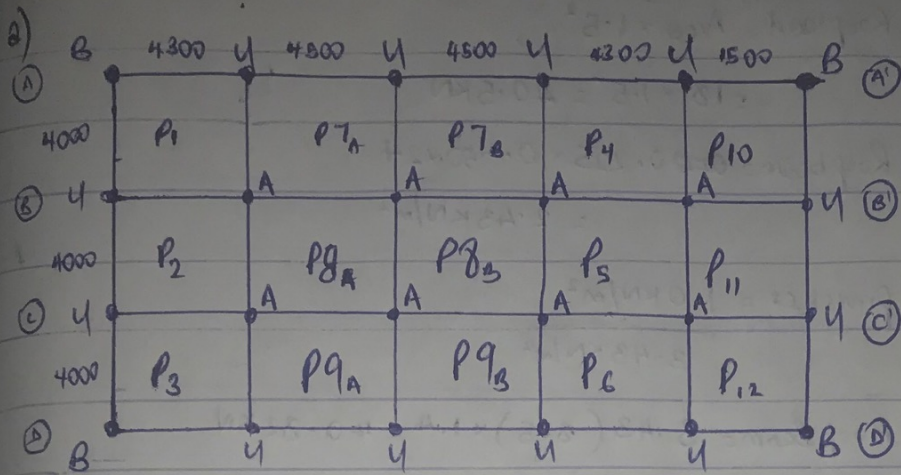 2)
B 4300 Y 4500 Y 4500 Y 4300 Y 1500 B
A A'
4000 P1 P7A P7B P4 P10
B Y A A A A Y B'
4000 P2 P8A P8B P5 P11
C Y A A A A Y C'
4000 P3 P9A P9B P6 P12
D D'
B Y Y Y Y B